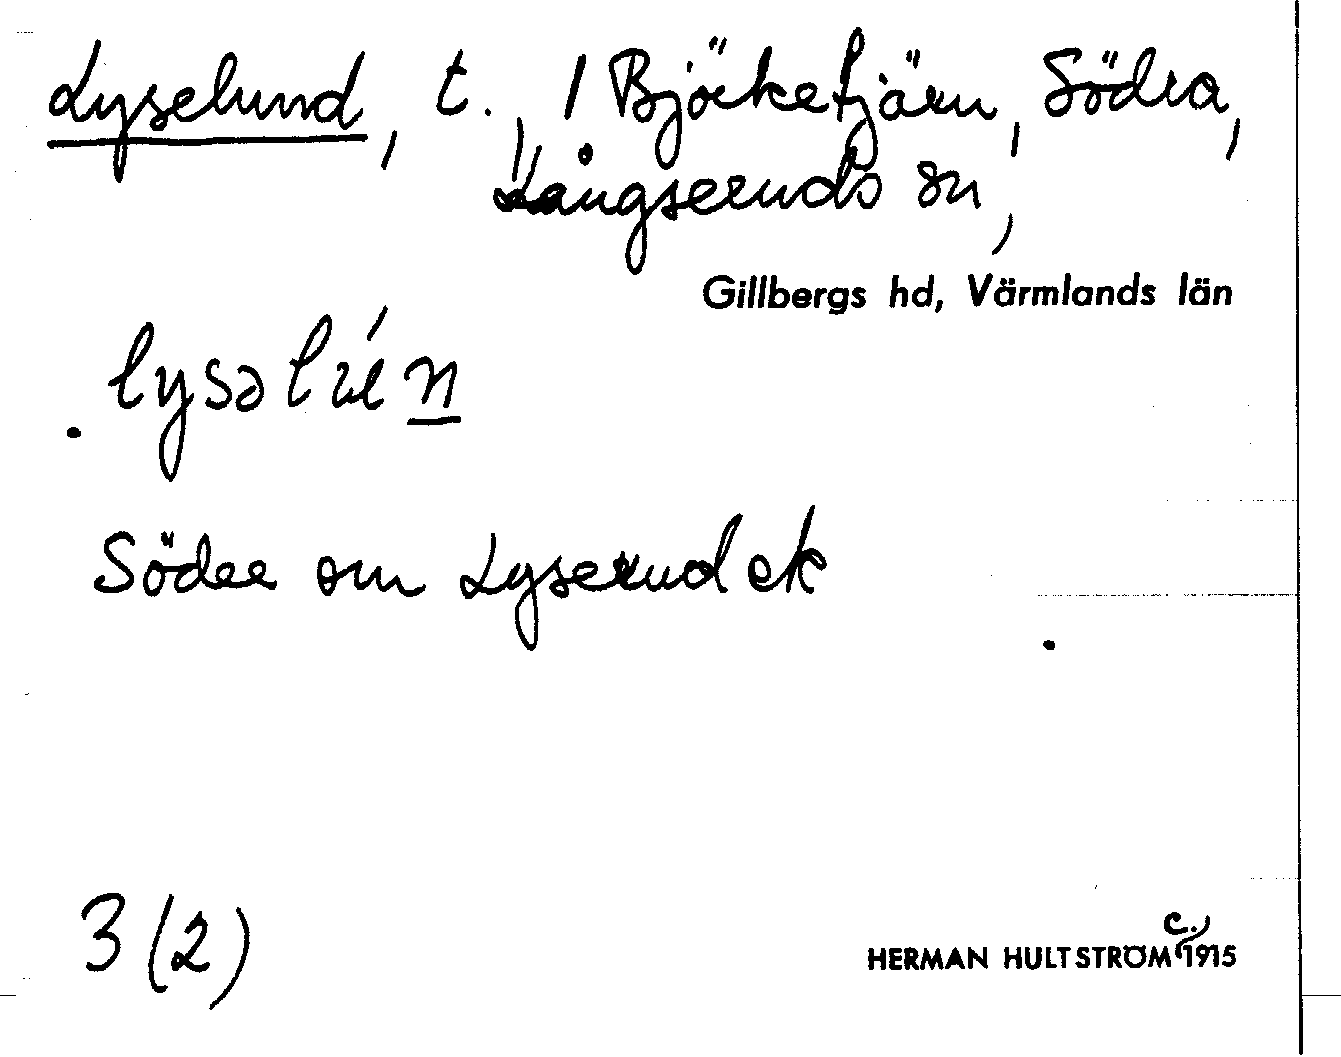 Lyselund, t., / Björketjärn, Södra,
Långseruds sn,
Gillbergs hd, Värmlands län
Söder om Lyserud ek
3 (2)
HERMAN HULTSTRÖM c. 1915